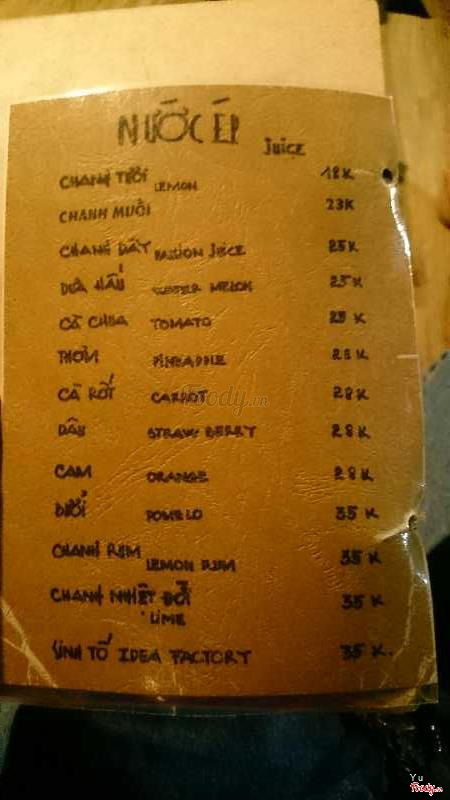 NƯỚC ÉP JUICE
CHANH TƯƠI LEMON 18K
CHANH MUỐI 23K
CHANH DÂY PASSION JUICE 25K
DƯA HẤU WATER MELON 25K
CÀ CHUA TOMATO 25K
THƠM PINEAPPLE 28K
CÀ RỐT CARROT 28K
DÂU STRAWBERRY 28K
CAM ORANGE 28K
BƯỞI POMELO 35K
CHANH RUM LEMON RUM 35K
CHANH NHIỆT ĐỚI 35K
LIME
SINH TỐ IDEA FACTORY 35K.
foody.vn
Yu
Foody.vn